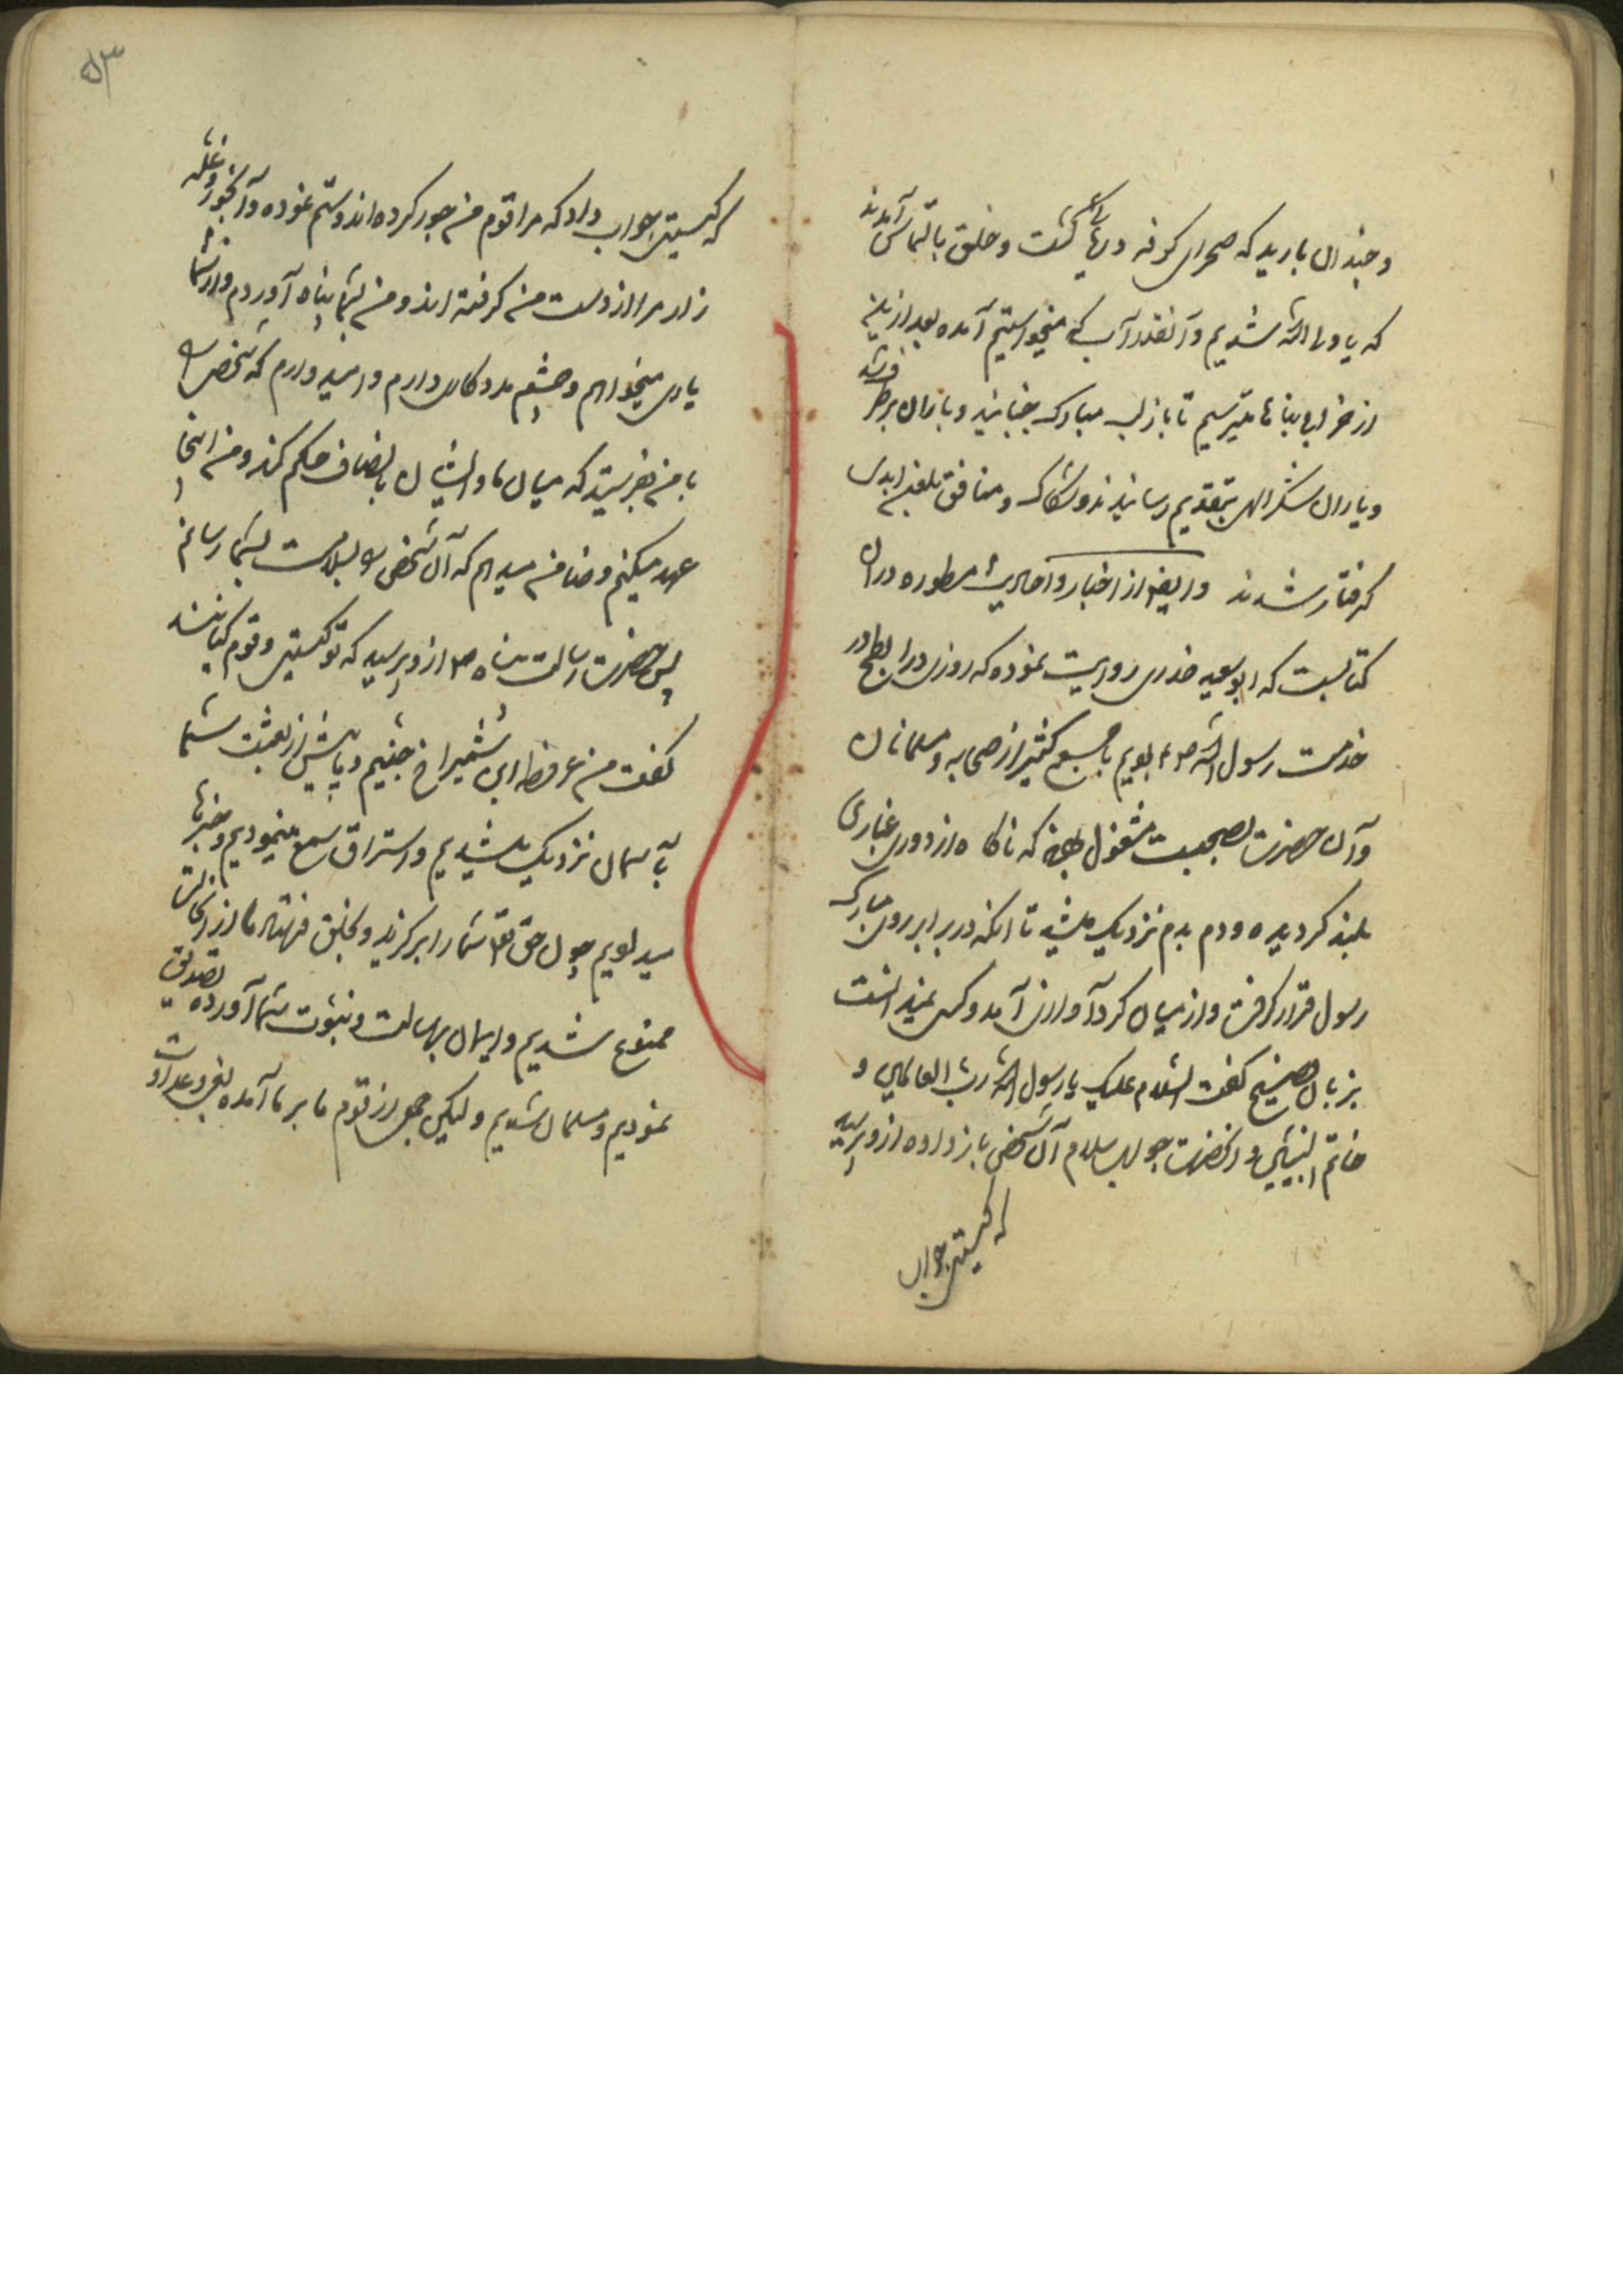 و چندان بارید که صحرای کوفه دریای گشت و خلق بالتماس آمدند
که یا ولی الله شدیم و آنقدر آب که میخواستیم آمده بعد ازین
از خرابی بناها میترسیم تا باز لب مبارک جنبانید و باران برطرف شد
و یاران شکر الهی بتقدیم رسانیدند و شکاک و منافق بلعن ابدی
گرفتار شدند و ایضا از اخبار و احادیث مسطوره در آن
کتابست که ابو سعید خدری روایت نموده که روزی در ابطح در
خدمت رسول الله ص بودیم با جمع کثیر از صحابه و مسلمانان
و آن حضرت بصحبت مشغول بود که ناگاه از دور غباری
بلند گردیده و دم بدم نزدیک میشد تا آنکه در برابر روی مبارک
رسول قرار گرفت و از میان گرد آوازی آمد و کس نمیدانست
بزبان فصیح گفت السلام علیک یا رسول الله رب العالمین و
خاتم النبیین و آنحضرت جواب سلام آن شخص باز داده از و پرسید
که کیستی جواب
۵۳
که کیستی جواب داد که مرا قوم من جور کرده‌اند و ستم نموده و آبخور و غله
زار مرا از دست من گرفته اند و من بشما پناه آوردم و از شما
یاری میخواهم و چشم مددکاری دارم و امید دارم که شخصی را
با من بفرستید که میان ما و ایشان بانصاف حکم کند و من اینجا
عهد میکنم و ضامن میدهم که آن شخص را بسلامت بشما رسانم
پس حضرت رسالت پناه ص از و پرسید که تو کیستی و قوم کیانند
گفت من عرفطه ابن شمراخ جنیم و پیش از بعثت شما
بآسمان نزدیک میشدیم و استراق سمع مینمودیم و خبرها
میدادیم چون حق تعا شما را برگزید و بخلق فرستاد ما از آن حالت
ممنوع شدیم و ایمان برسالت و نبوت شما آورده تصدیق
نمودیم و مسلمان شدیم و لیکن جمعی از قوم ما بر ما آمده بغی و عداوت